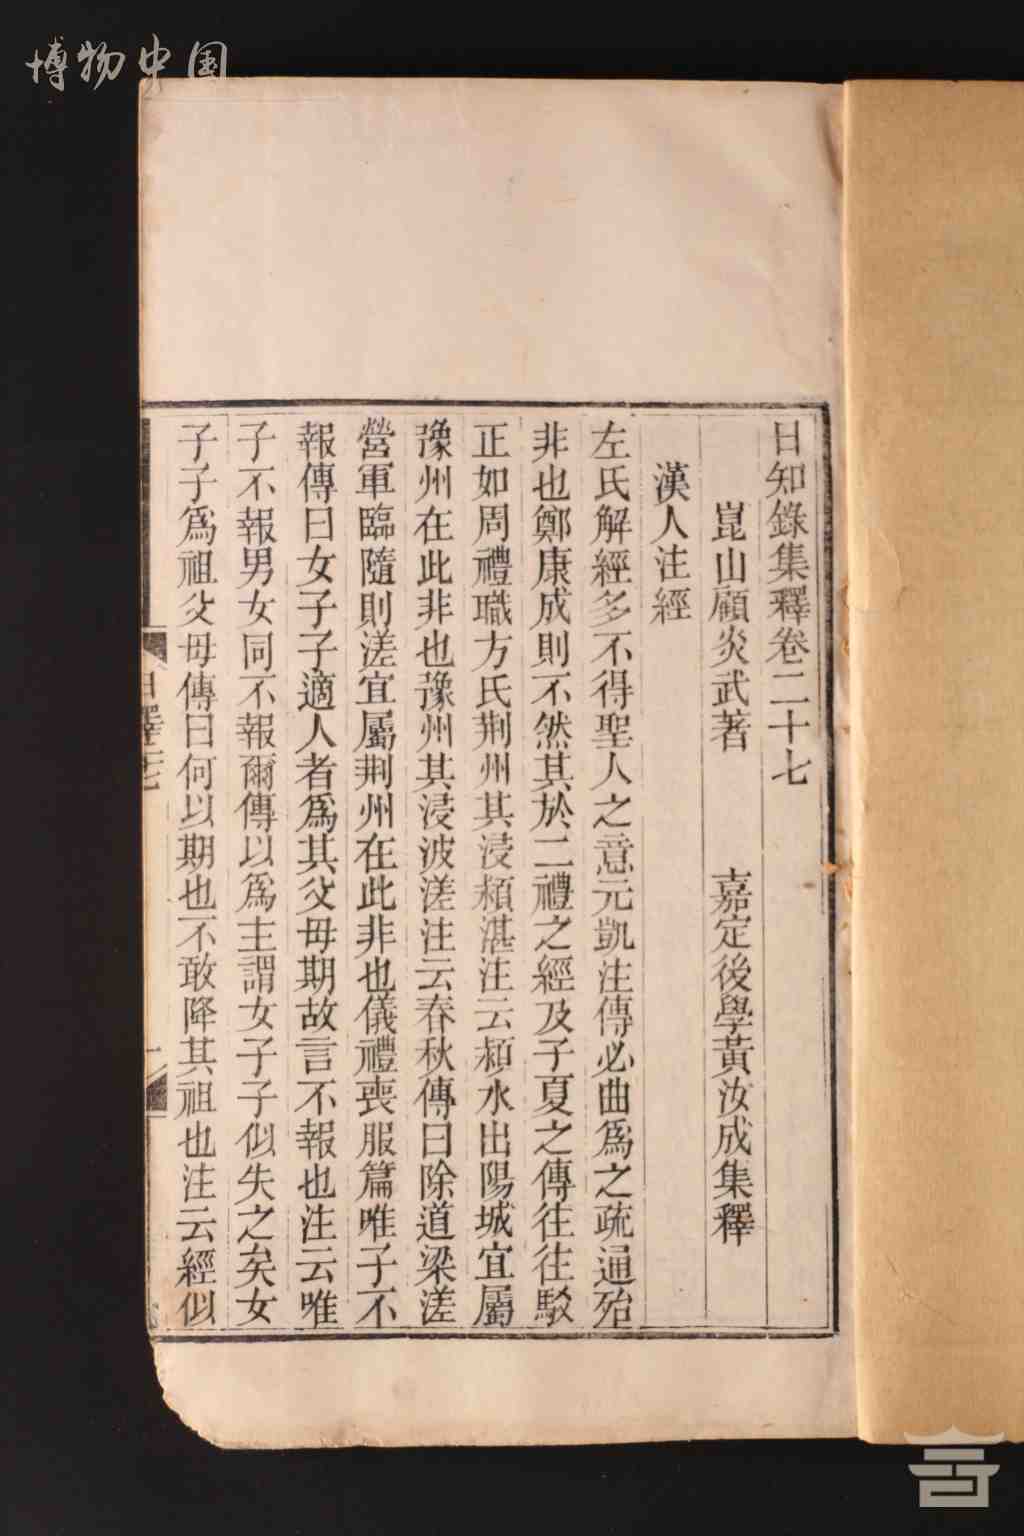 博物中国
日知錄集釋卷二十七
崑山顧炎武著 嘉定後學黃汝成集釋
漢人注經
左氏解經多不得聖人之意元凱注傳必曲爲之疏通殆
非也鄭康成則不然其於二禮之經及子夏之傳往往駁
正如周禮職方氏荆州其浸潁湛注云潁水出陽城宜屬
豫州在此非也豫州其浸波溠注云春秋傳曰除道梁溠
營軍臨隨則溠宜屬荆州在此非也儀禮喪服篇唯子不
報傳曰女子子適人者爲其父母期故言不報也注云唯
子不報男女同不報爾傳以爲主謂女子子似失之矣女
子子爲祖父母傳曰何以期也不敢降其祖也注云經似